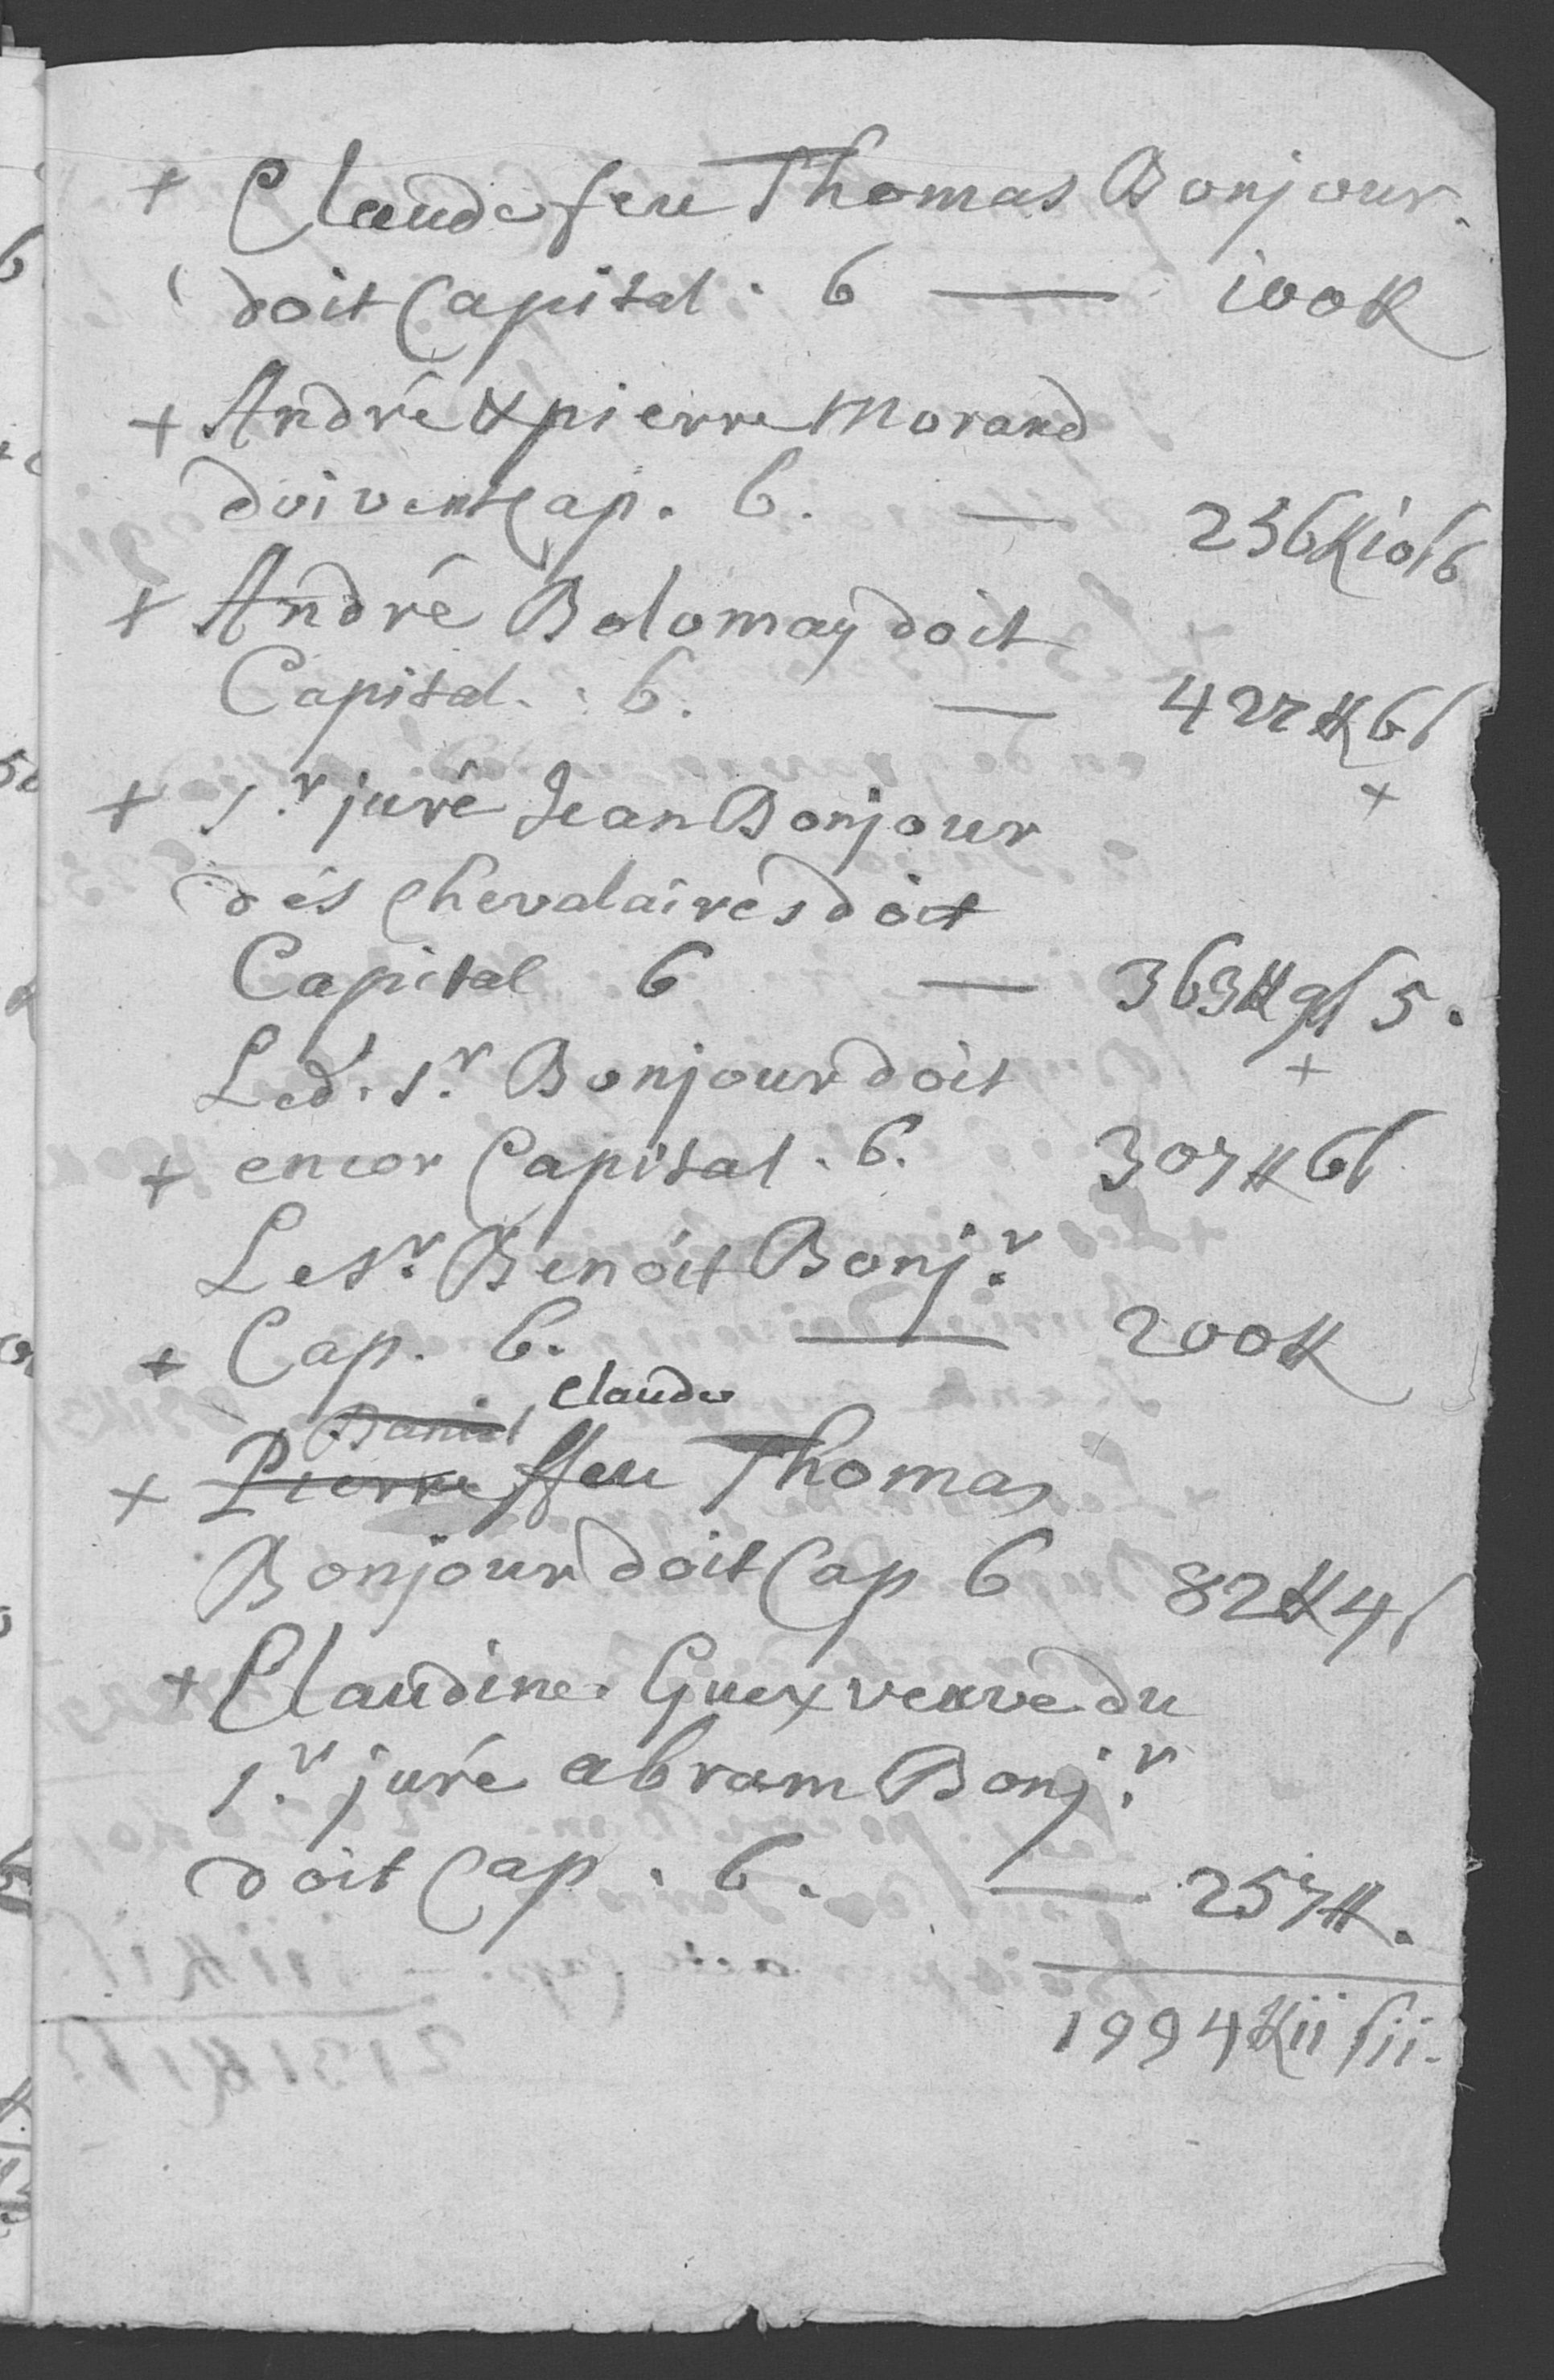 + Claude feu Thomas Bonjour.
doit Capital . 6 — 100 ff
+ André & pierre Morand
doivent Cap. 6. — 256 ff 10 s 6
+ André Bolomay doit
Capital. 6. — 427 ff 6 s
+ Sr. juré Jean Bonjour +
dés Chevalaires doit
Capital 6 — 363 ff 9 s 5.
Led. Sr. Bonjour doit +
+ encor Capital . 6. 307 ff 6 s
Le Sr. Benoit Bonjr.
+ Cap. 6. — 200 ff
Daniel Claude
+ Pierre ffeu Thomas
Bonjour doit Cap 6 82 ff 4 s
+ Claudine Guex veuve du
Sr. juré abram Bonjr.
doit Cap . 6. — 257 ff.
1994 ff ii s ii.